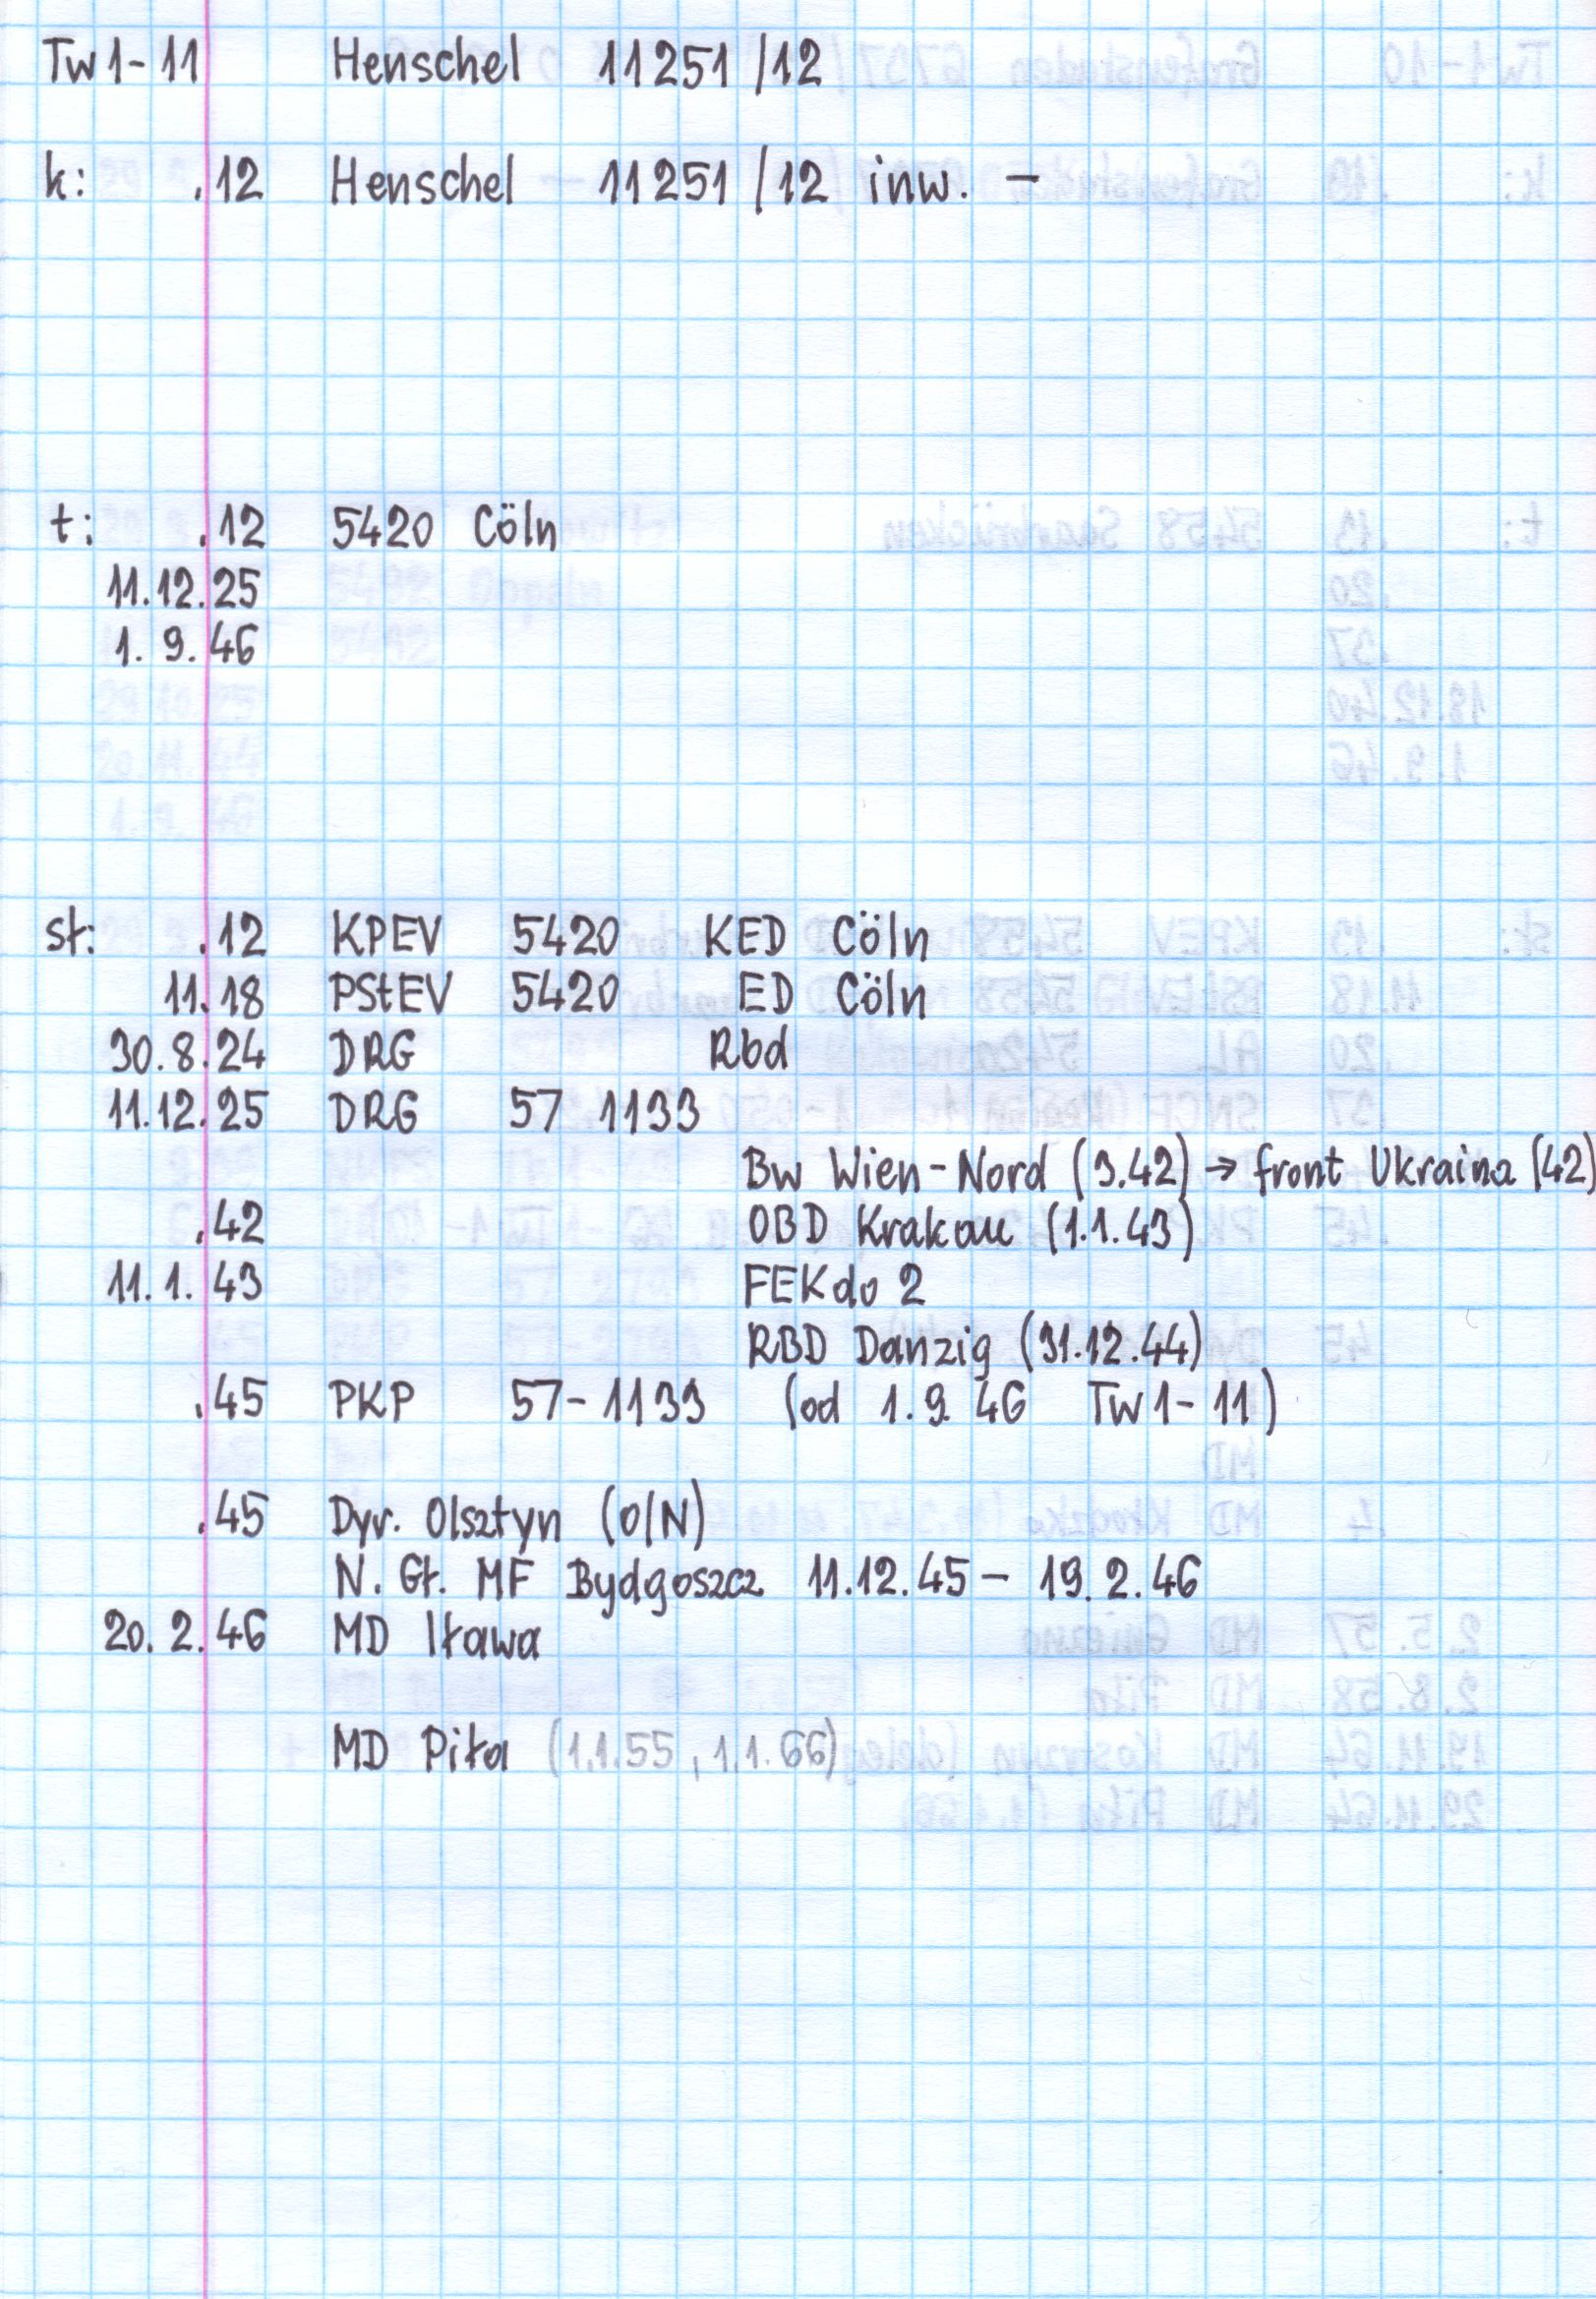 Tw1-11 Henschel 11251/12
k: .12 Henschel - 11251/12 inw. -
t: .12 5420 Cöln
11.12.25
1.9.46
sł: .12 KPEV 5420 KED Cöln
11.18 PStEV 5420 ED Cöln
30.8.24 DRG Rbd
11.12.25 DRG 57 1133
Bw Wien-Nord (3.42) → front Ukraina (42)
.42 OBD Krakau (1.1.43)
11.1.43 FEKdo 2
RBD Danzig (31.12.44)
.45 PKP 57-1133 (od 1.9.46 Tw1-11)
.45 Dyr. Olsztyn (O/N)
N. Gł. MF Bydgoszcz 11.12.45 - 19.2.46
20.2.46 MD Iława
MD Piła (1.1.55, 1.1.66)